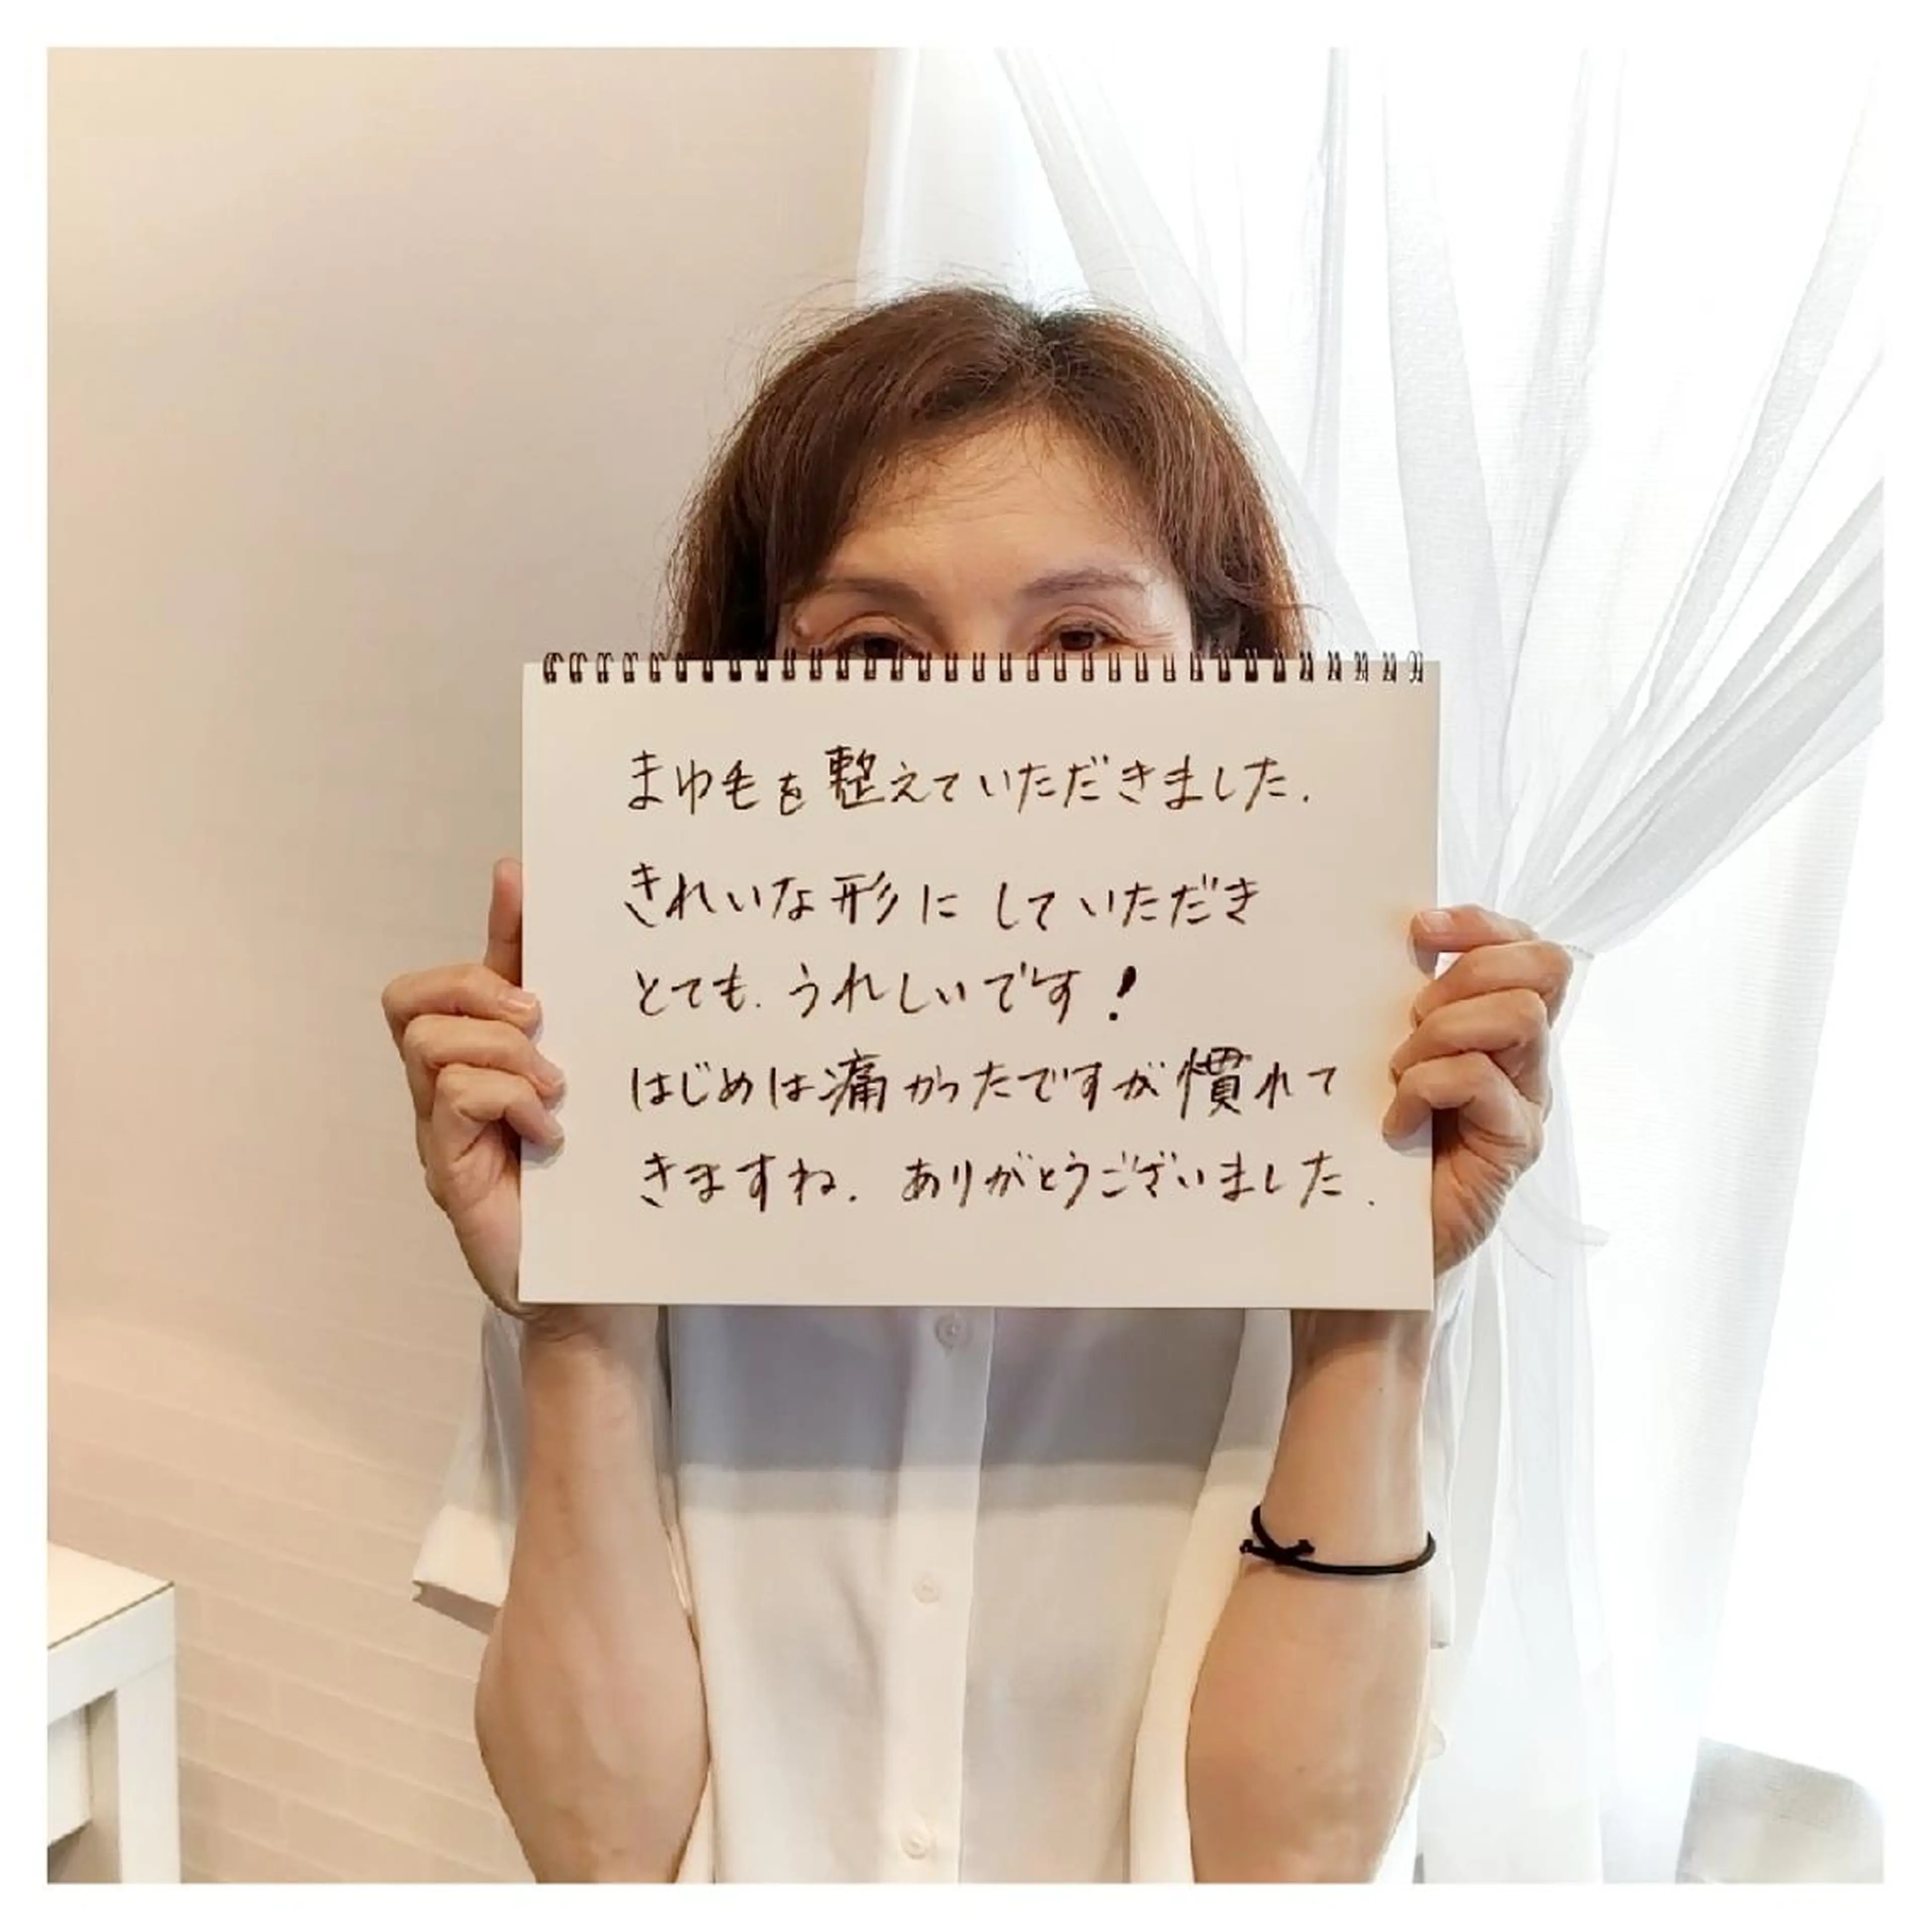 まゆ毛を整えていただきました.
きれいな形にしていただき
とても.うれしいです!
はじめは痛かったですが慣れて
きますね. ありがとうございました.